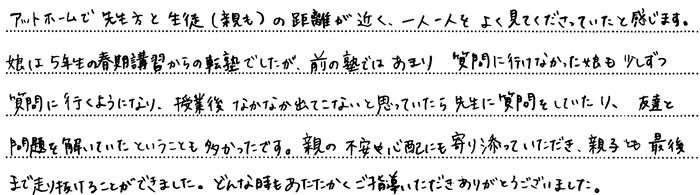 アットホームで先生方と生徒(親も)の距離が近く、一人一人をよく見てくださっていたと感じます。
娘は5年生の春期講習からの転塾でしたが、前の塾ではあまり質問に行けなかった娘も少しずつ
質問に行くようになり、授業後なかなか出てこないと思っていたら先生に質問をしていたり、友達と
問題を解いていたということも多かったです。親の不安や心配にも寄り添っていただき、親子とも最後
まで走り抜けることができました。どんな時もあたたかくご指導いただきありがとうございました。